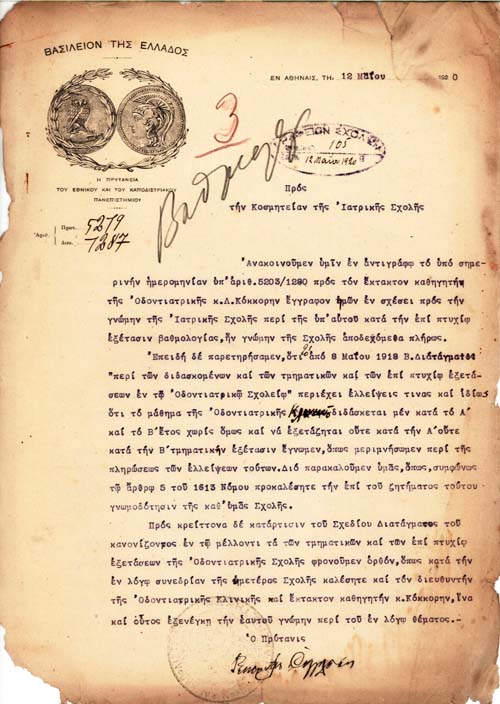 ΒΑΣΙΛΕΙΟΝ ΤΗΣ ΕΛΛΑΔΟΣ
ΕΝ ΑΘΗΝΑΙΣ, ΤΗι 12 Μαΐου 1920
3
Βαθμολογ
105
12 Μαΐου 1920
Η ΠΡΥΤΑΝΕΙΑ
ΤΟΥ ΕΘΝΙΚΟΥ ΚΑΙ ΤΟΥ ΚΑΠΟΔΙΣΤΡΙΑΚΟΥ
ΠΑΝΕΠΙΣΤΗΜΙΟΥ
Ἀριθ. Πρωτ. 5219
Διεκ. 1287
Πρός
τήν Κοσμητείαν τῆς Ἰατρικῆς Σχολῆς
Ἀνακοινοῦμεν ὑμῖν ἐν ἀντιγράφῳ τό ὑπό σημε-
ρινήν ἡμερομηνίαν ὑπ'ἀριθ.5203/1280 πρός τόν ἔκτακτον καθηγητήν
τῆς Ὀδοντιατρικῆς κ.Δ.Κόκκορην ἔγγραφον ἡμῶν ἐν σχέσει πρός τήν
γνώμην τῆς Ἰατρικῆς Σχολῆς περί τῆς ὑπ'αὐτοῦ κατά τήν ἐπί πτυχίῳ
ἐξέτασιν βαθμολογίας,ἥν γνώμην τῆς Σχολῆς ἀποδεχόμεθα πλήρως.
Ἐπειδή δέ παρετηρήσαμεν,ὅτι τό ἀπό 8 Μαΐου 1918 Β.Διάταγμα
"περί τῶν διδασκομένων καί τῶν τμηματικῶν καί τῶν ἐπί πτυχίῳ ἐξετά-
σεων ἐν τῷ Ὀδοντιατρικῷ Σχολείῳ" περιέχει ἐλλείψεις τινας καί ἰδίως
ὅτι τό μάθημα τῆς Ὀδοντιατρικῆς Κλινικῆς διδάσκεται μέν κατά τό Α'
καί τό Β'ἔτος χωρίς ὅμως καί νά ἐξετάζηται οὔτε κατά τήν Α'οὔτε
κατά τήν Β'τμηματικήν ἐξέτασιν ἔγνωμεν,ὅπως μεριμνήσωμεν περί τῆς
πληρώσεως τῶν ἐλλείψεων τούτων.Διό παρακαλοῦμεν ὑμᾶς,ὅπως,συμφώνως
τῷ ἄρθρῳ 5 τοῦ 1613 Νόμου προκαλέσητε τήν ἐπί τοῦ ζητήματος τούτου
γνωμοδότησιν τῆς καθ'ὑμᾶς Σχολῆς.
Πρός κρείττονα δέ κατάρτισιν τοῦ Σχεδίου Διατάγματος τοῦ
κανονίζοντος ἐν τῷ μέλλοντι τά τῶν τμηματικῶν καί τῶν ἐπί πτυχίῳ
ἐξετάσεων τῆς Ὀδοντιατρικῆς Σχολῆς φρονοῦμεν ὀρθόν,ὅπως κατά τήν
ἐν λόγῳ συνεδρίαν τῆς ὑμετέρας Σχολῆς καλέσητε καί τόν διευθυντήν
τῆς Ὀδοντιατρικῆς Κλινικῆς καί ἔκτακτον καθηγητήν κ.Κόκκορην,ἵνα
καί οὗτος ἐξενέγκῃ τήν ἑαυτοῦ γνώμην περί τοῦ ἐν λόγῳ θέματος.-
Ὁ Πρύτανις